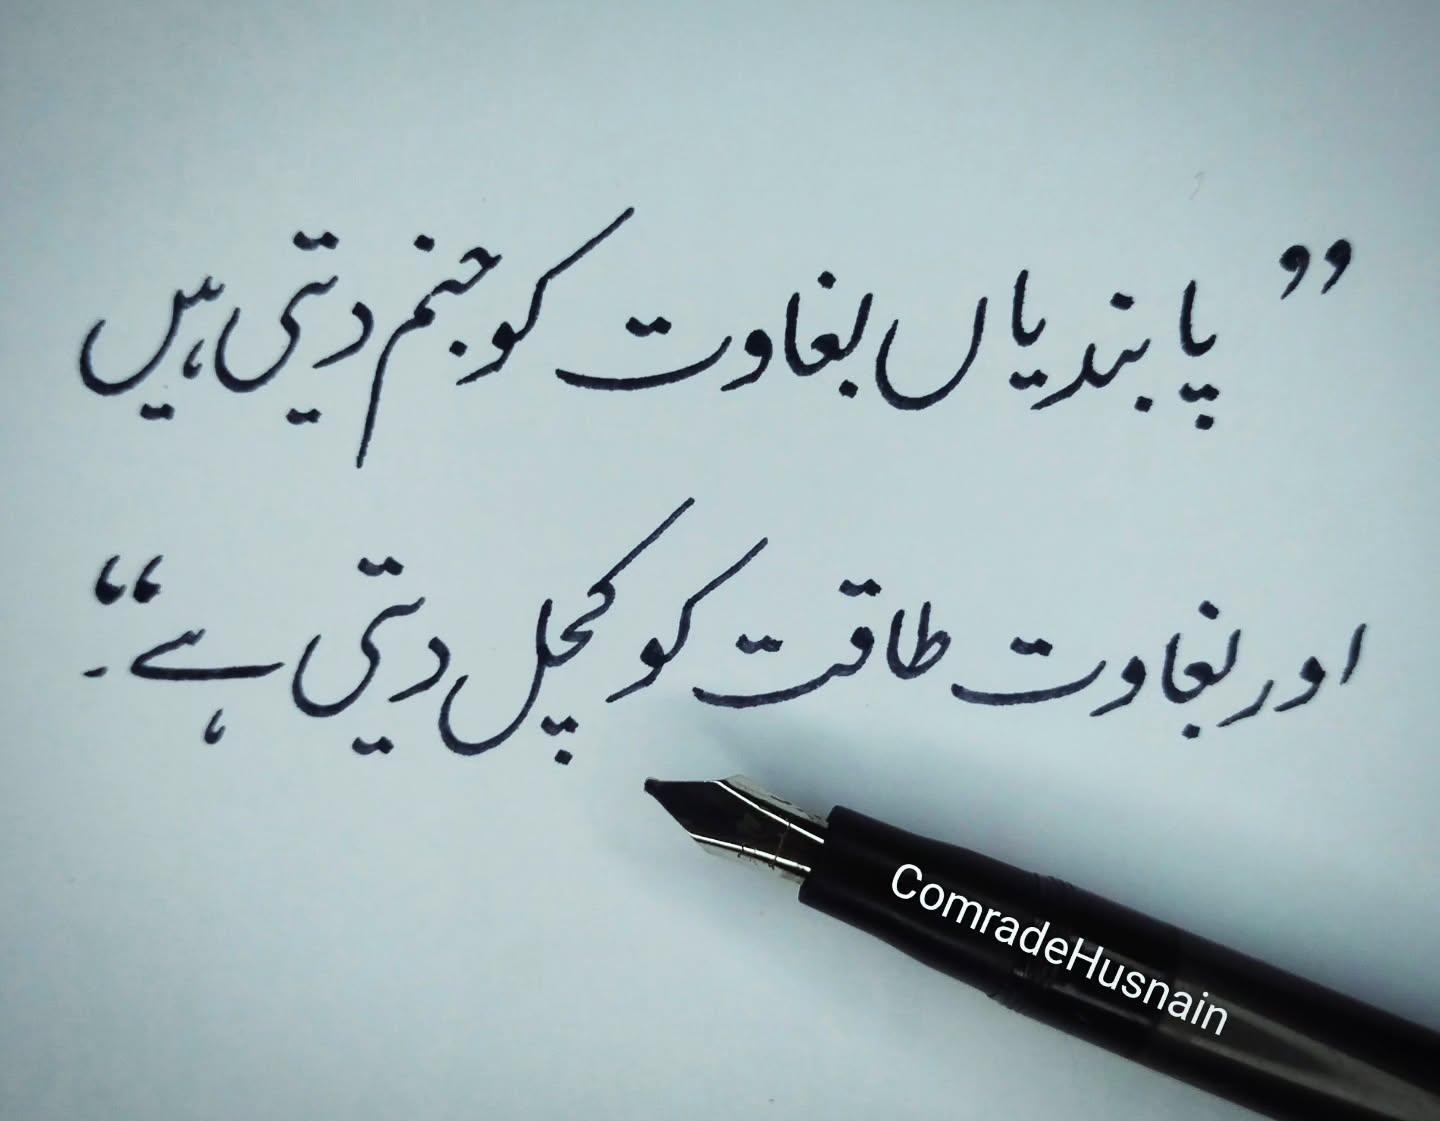 ”پابندیاں بغاوت کو جنم دیتی ہیں
اور بغاوت طاقت کو کچل دیتی ہے۔“
ComradeHusnain